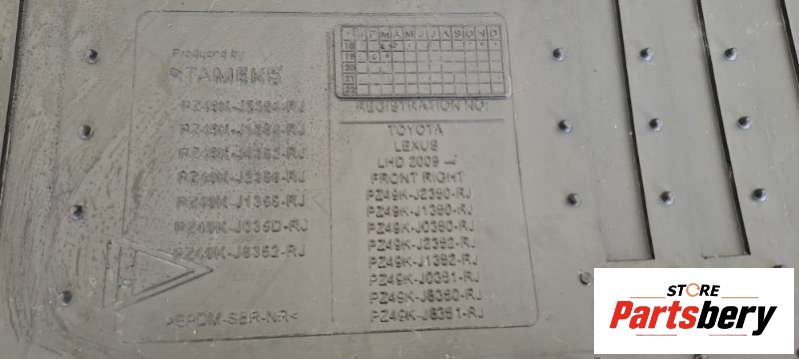 Produced by
STAMEKS
PZ49K-J1366-RJ
PZ49K-J035D-RJ
PZ49K-J8352-RJ
>EPDM-SBR-NR<
J F M A M J J A S O N D
18
19
20
21
22
REGISTRATION NO:
TOYOTA
LEXUS
LHD 2009 →
FRONT RIGHT
PZ49K-J2360-RJ
PZ49K-J1360-RJ
PZ49K-J0360-RJ
PZ49K-J2362-RJ
PZ49K-J1362-RJ
PZ49K-J0361-RJ
PZ49K-J8360-RJ
PZ49K-J8361-RJ
STORE
Partsbery